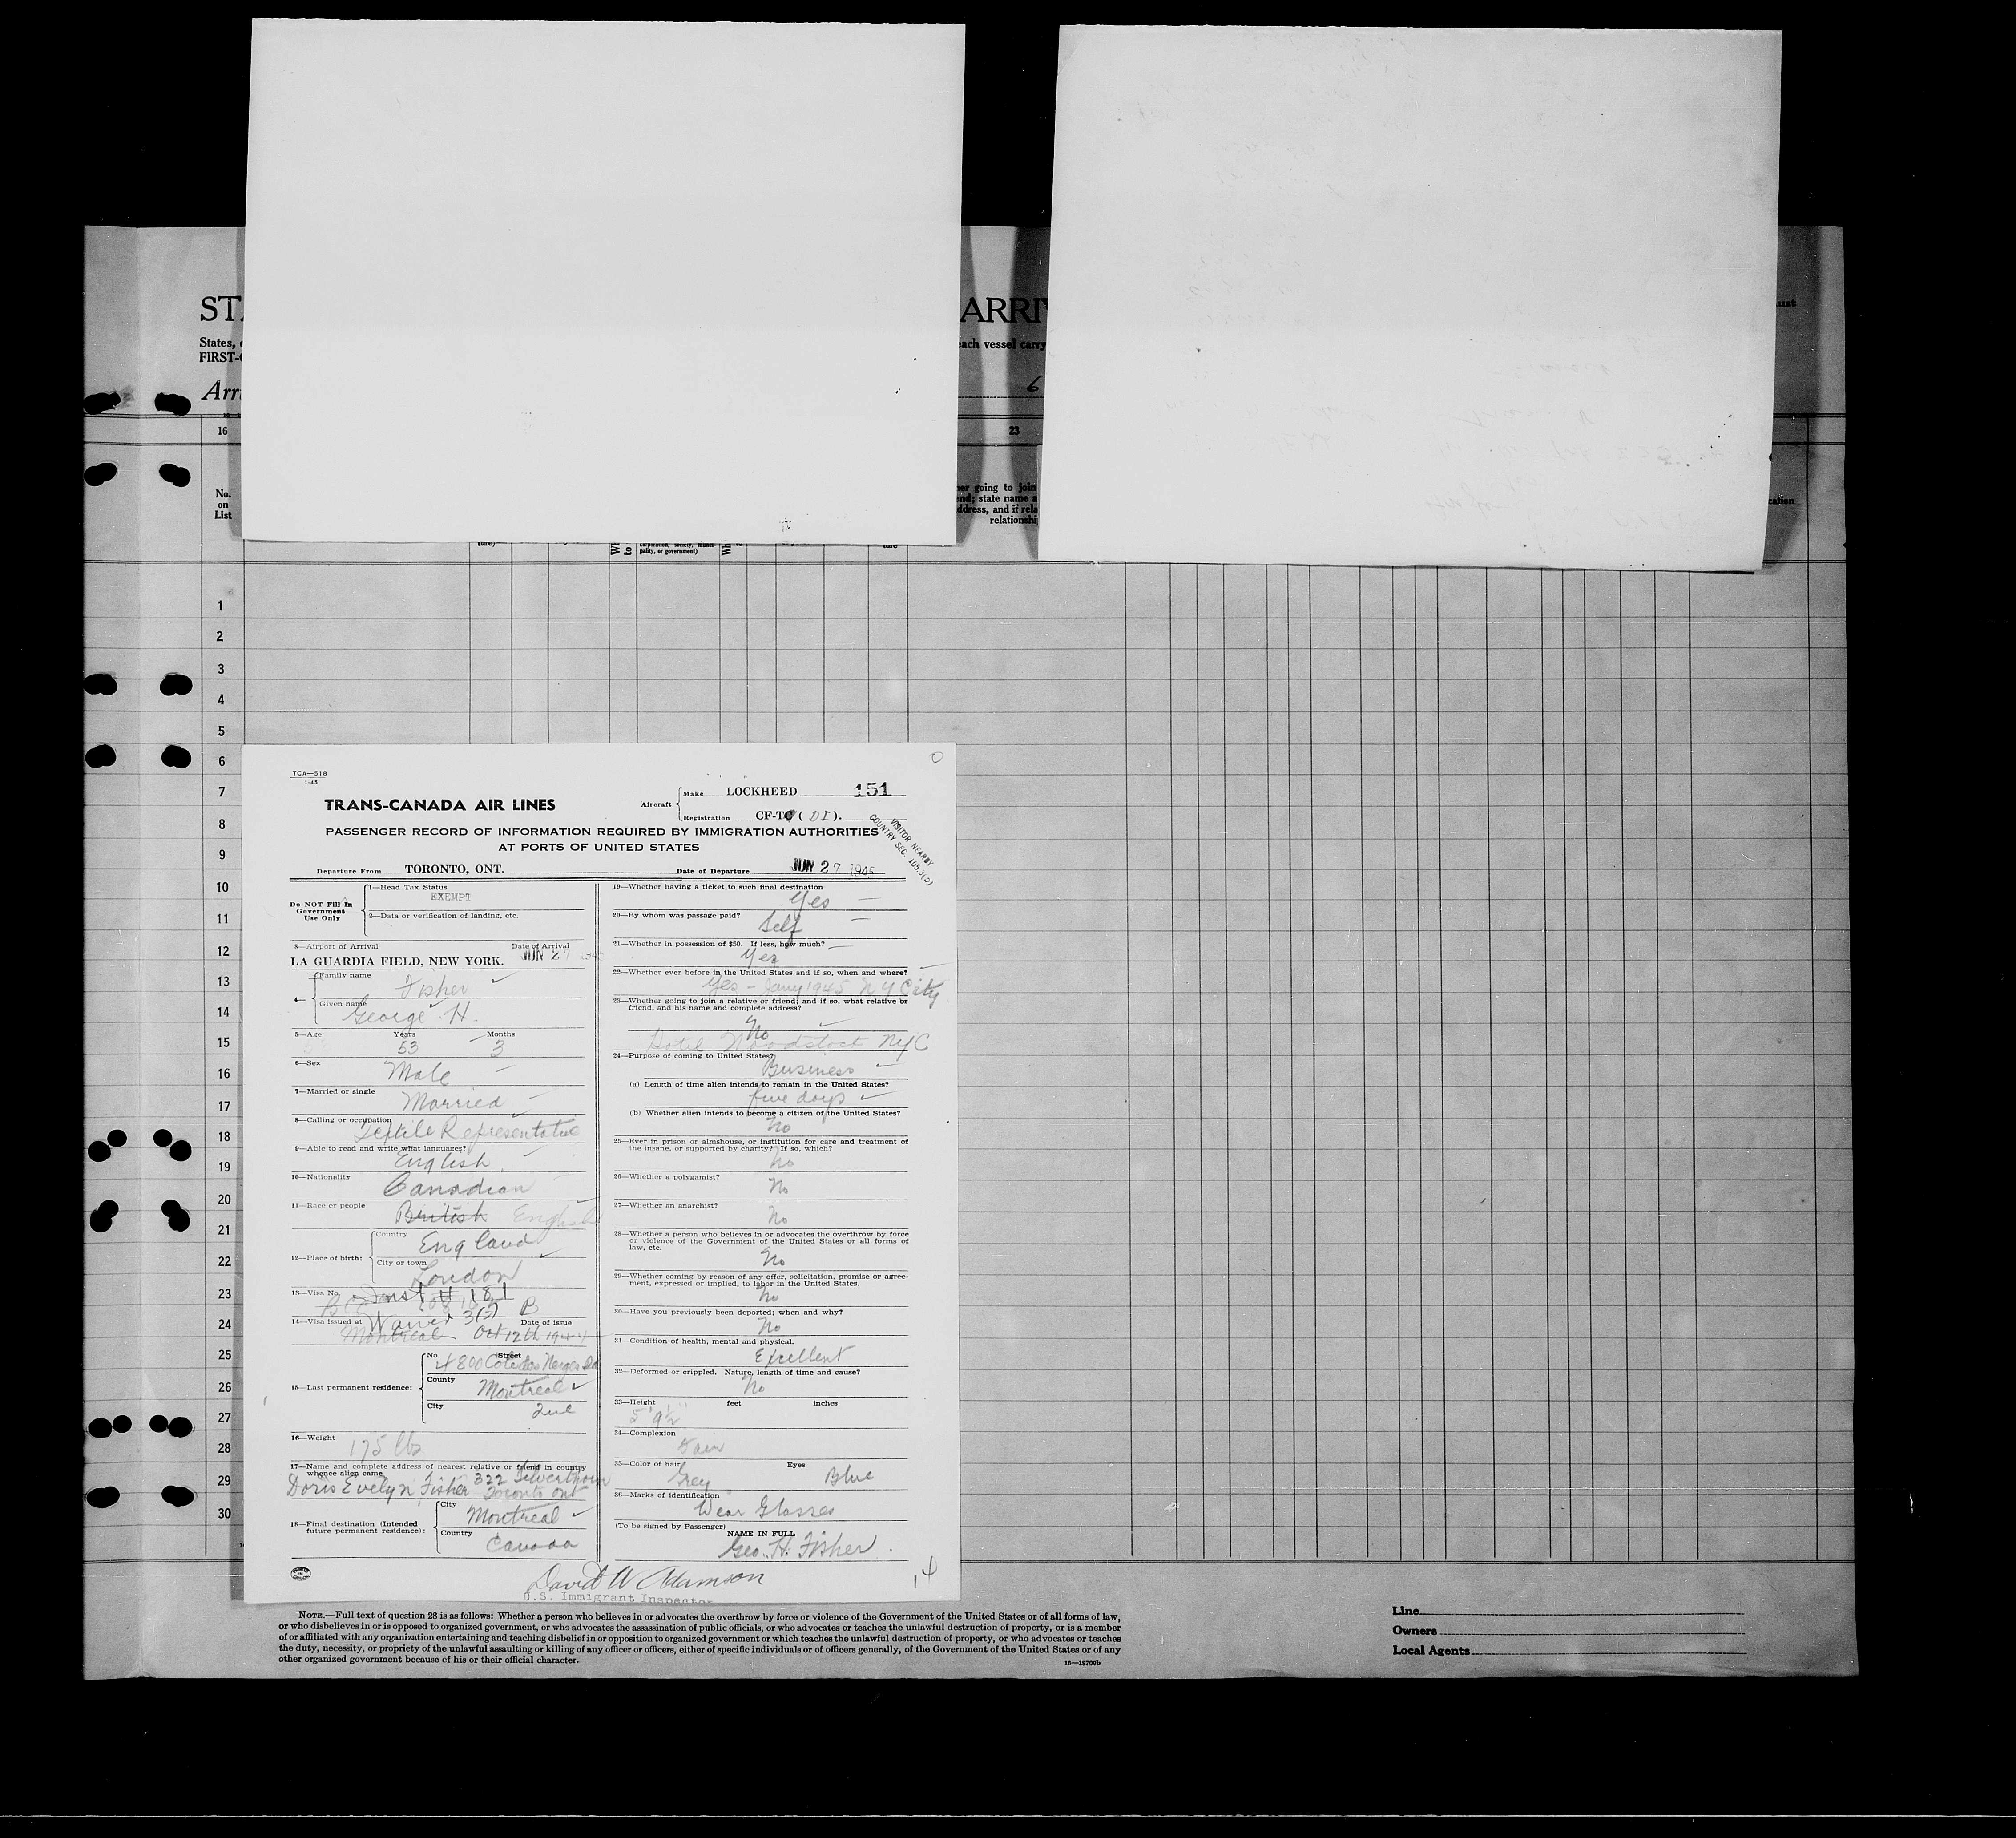 ST
ARRI
ust
States,
each vessel carry
FIRST-
Arri
6
16
23
No.
on
List
her going to join
end; state name a
address, and if rela
relationshi
cation
ture)
to
corporation, society, munici-
pality, or government)
ture
1
2
3
4
5
6
7
8
9
10
11
12
13
14
15
16
17
18
19
20
21
22
23
24
25
26
27
28
29
30
TCA—518
1-45
TRANS-CANADA AIR LINES
Aircraft
Make LOCKHEED 151
Registration CF-TC (DI).
PASSENGER RECORD OF INFORMATION REQUIRED BY IMMIGRATION AUTHORITIES
AT PORTS OF UNITED STATES
VISITOR NEARBY
COUNTRY SEC.
Departure From TORONTO, ONT.
Date of Departure JUN 27 1945
Do NOT Fill In
Government
Use Only
1—Head Tax Status
EXEMPT
2—Data or verification of landing, etc.
3—Airport of Arrival Date of Arrival
LA GUARDIA FIELD, NEW YORK. JUN 27 194
4—
Family name
Fisher
Given name
George H.
5—Age Years Months
53 3
6—Sex
Male
7—Married or single
Married
8—Calling or occupation
Textile Representative
9—Able to read and write what languages?
English
10—Nationality
Canadian
11—Race or people
British English
12—Place of birth:
Country
England
City or town
London
13—Visa No.
181
14—Visa issued at Waiver 3(2) B Date of issue
Montreal Oct 12th 1944
15—Last permanent residence:
No. Street
4800 Cote des Neiges Rd
County
Montreal
City
Que
16—Weight
175 lbs
17—Name and complete address of nearest relative or friend in country
whence alien came
Doris Evelyn Fisher 322 Silverthorn
Toronto Ont
18—Final destination (Intended
future permanent residence):
City
Montreal
Country
Canada
19—Whether having a ticket to such final destination
Yes
20—By whom was passage paid?
Self
21—Whether in possession of $50. If less, how much?
Yes
22—Whether ever before in the United States and if so, when and where?
Yes - Jany 1945 NY City
23—Whether going to join a relative or friend; and if so, what relative or
friend, and his name and complete address?
No
Hotel Woodstock NYC
24—Purpose of coming to United States?
Business
(a) Length of time alien intends to remain in the United States?
five days
(b) Whether alien intends to become a citizen of the United States?
No
25—Ever in prison or almshouse, or institution for care and treatment of
the insane, or supported by charity? If so, which?
No
26—Whether a polygamist?
No
27—Whether an anarchist?
No
28—Whether a person who believes in or advocates the overthrow by force
or violence of the Government of the United States or all forms of
law, etc.
No
29—Whether coming by reason of any offer, solicitation, promise or agree-
ment, expressed or implied, to labor in the United States.
No
30—Have you previously been deported; when and why?
No
31—Condition of health, mental and physical.
Excellent
32—Deformed or crippled. Nature, length of time and cause?
No
33—Height feet inches
5' 9½"
34—Complexion
Fair
35—Color of hair Eyes
Grey Blue
36—Marks of identification
Wear Glasses
(To be signed by Passenger)
NAME IN FULL
Geo. H. Fisher
David W Adamson
U.S. Immigrant Inspector
14
NOTE.—Full text of question 28 is as follows: Whether a person who believes in or advocates the overthrow by force or violence of the Government of the United States or of all forms of law,
or who disbelieves in or is opposed to organized government, or who advocates the assassination of public officials, or who advocates or teaches the unlawful destruction of property, or is a member
of or affiliated with any organization entertaining and teaching disbelief in or opposition to organized government or which teaches the unlawful destruction of property, or who advocates or teaches
the duty, necessity, or propriety of the unlawful assaulting or killing of any officer or officers, either of specific individuals or of officers generally, of the Government of the United States or of any
other organized government because of his or their official character.
16—18709b
Line
Owners
Local Agents